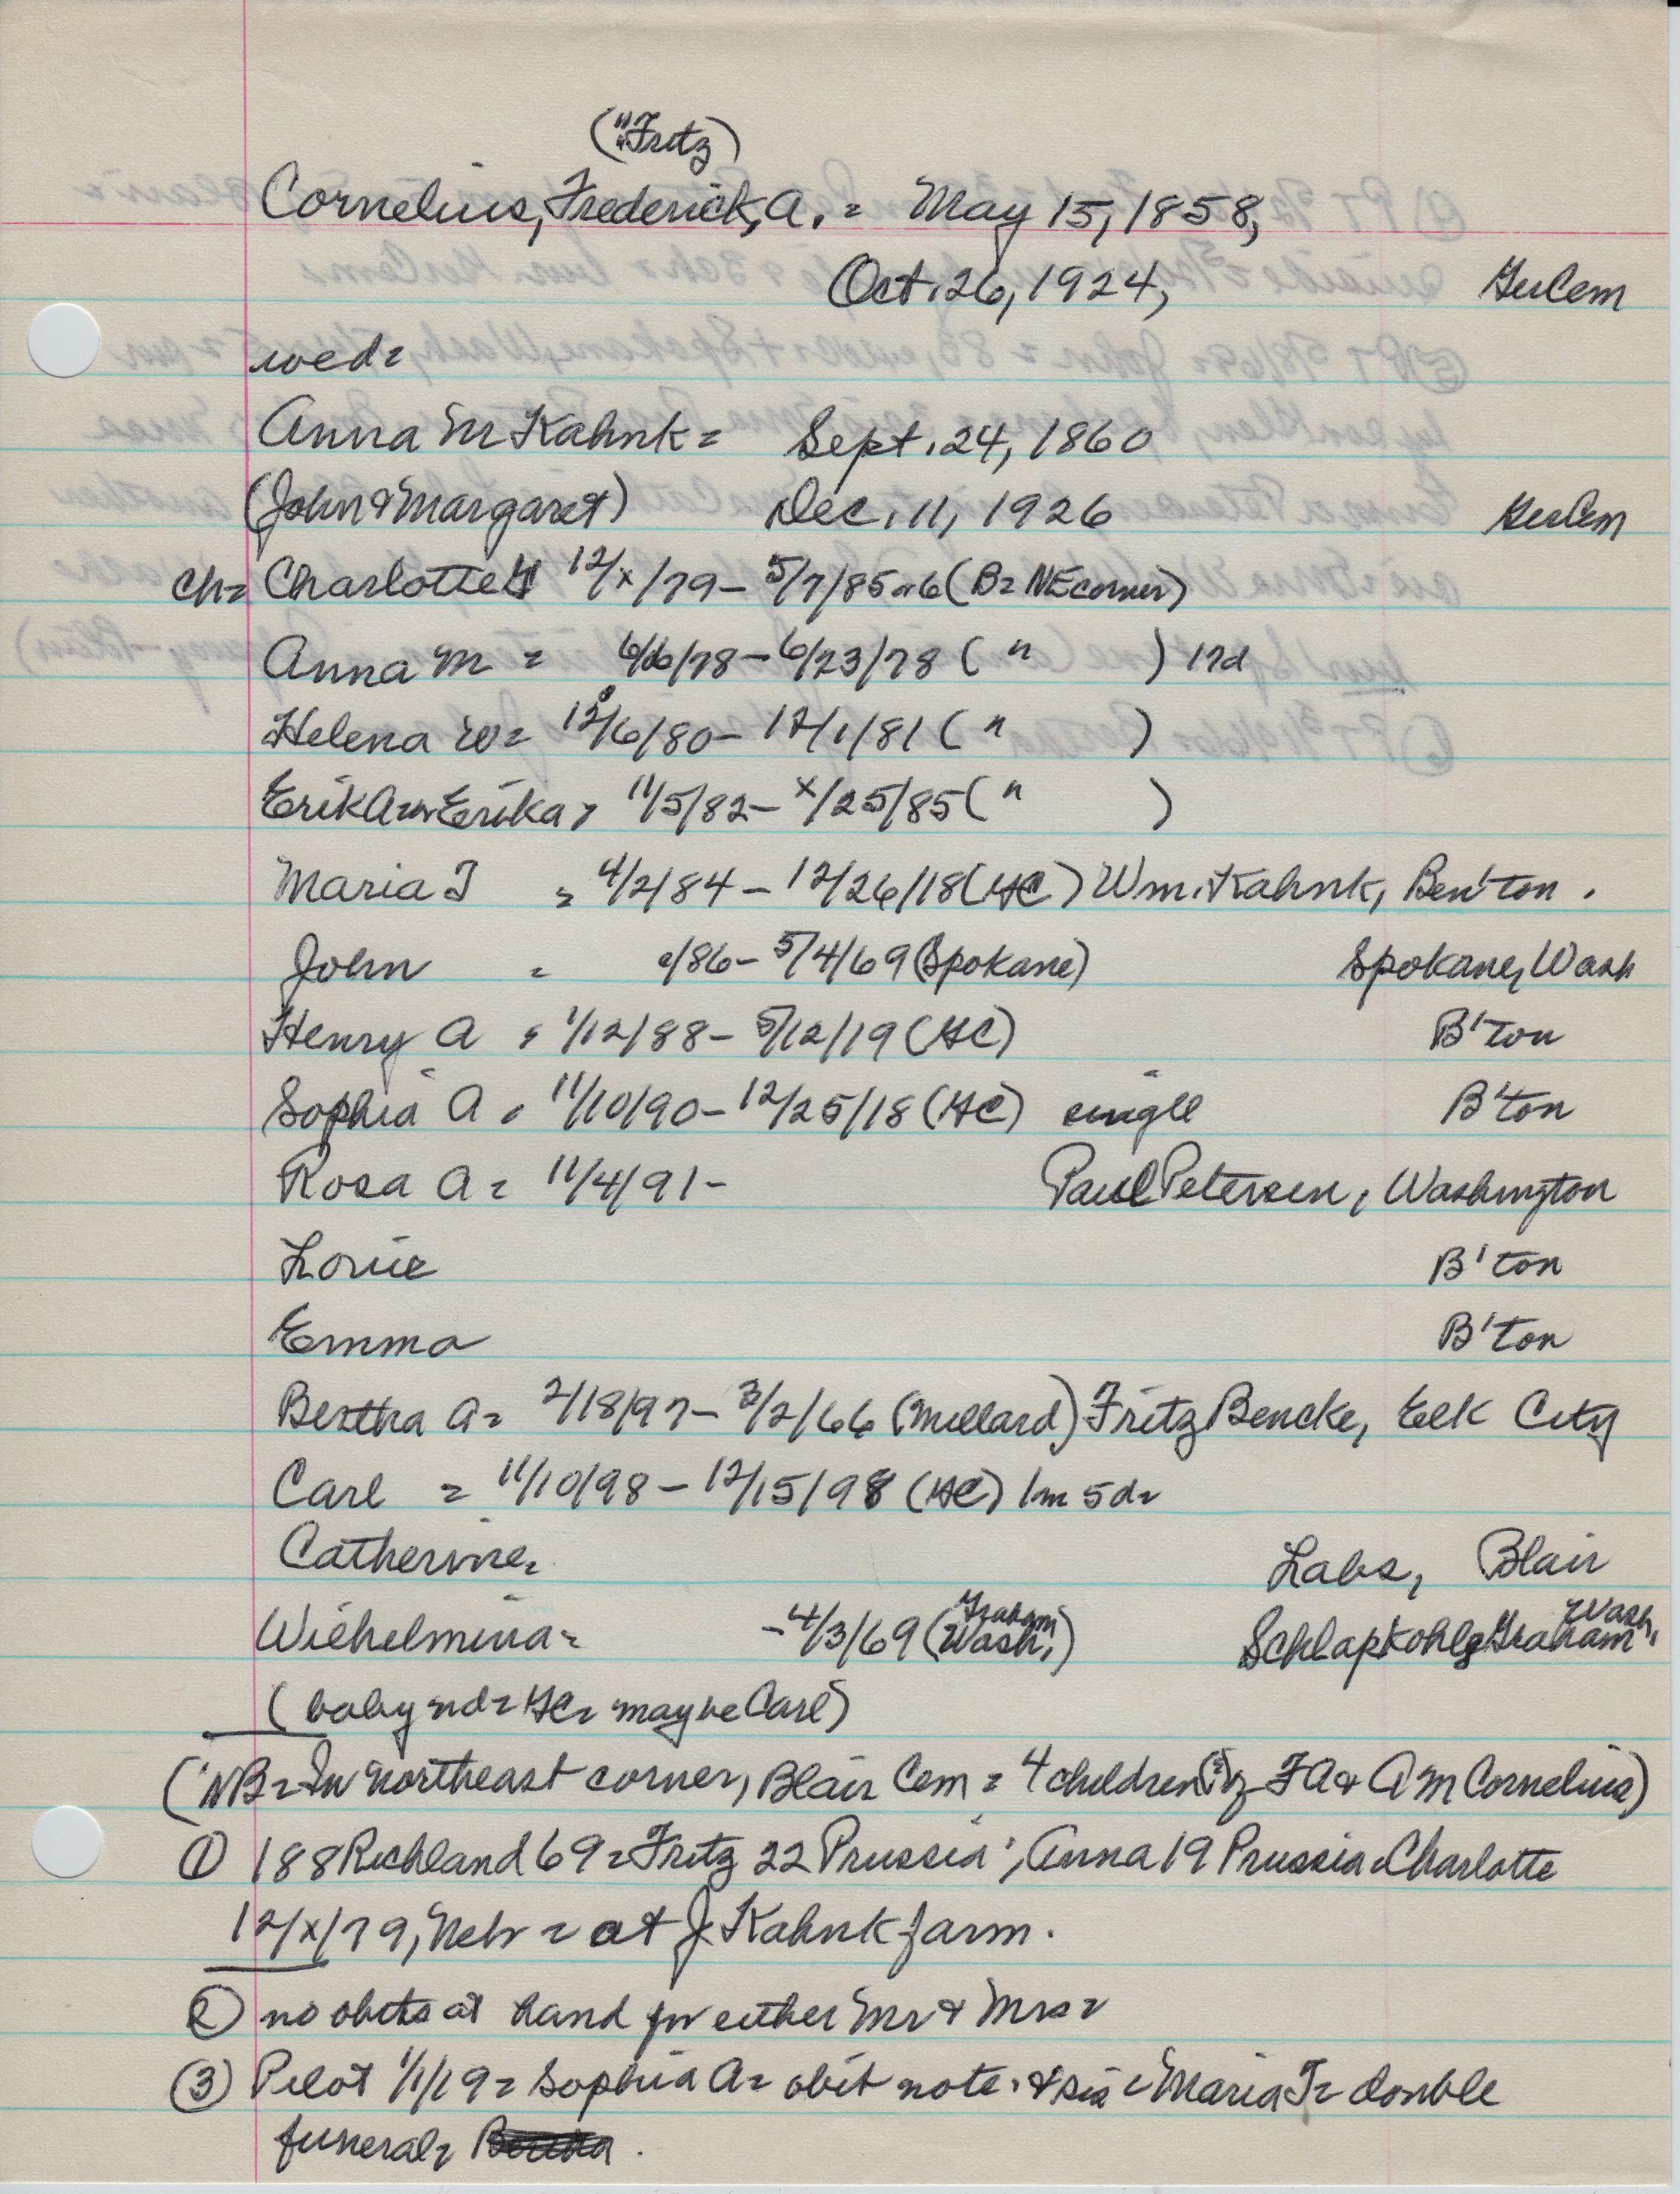 ("Fritz)
Cornelius, Frederick, A. = May 15, 1858,
Oct. 26, 1924, GerCem
wed=
Anna M Kahnk = Sept. 24, 1860
(John & Margaret) Dec. 11, 1926 GerCem
ch= Charlotte 12/x/79 - 5/7/85 a 6 (B= NE corner)
Anna M = 6/6/78 - 6/23/78 ( " ) 17d
Helena W = 12/6/80 - 12/1/81 ( " )
Erik A or Erika, 11/5/82 - x/25/85 ( " )
Maria T = 4/2/84 - 12/26/18 (HC) Wm. Kahnk, Ben'ton.
John = c/86 - 5/4/69 (Spokane) Spokane, Wash
Henry A = 1/12/88 - 5/12/19 (HC) B'ton
Sophia A = 11/10/90 - 12/25/18 (HC) single B'ton
Rosa A = 11/4/91 - Paul Petersen, Washington
Louie B'ton
Emma B'ton
Bertha A = 2/18/97 - 3/2/66 (Millard) Fritz Bencke, Elk City
Carl = 11/10/98 - 12/15/98 (HC) 1m 5d=
Catherine= Labs, Blair
Wilhelmina= -4/3/69 (Graham Wash,) Schlapkohl, Graham Wash.
(baby nd= HC= maybe Carl)
(NB= In northeast corner, Blair Cem = 4 children (?) of F A & A M Cornelius)
① 188 Richland 69 = Fritz 22 Prussia; Anna 19 Prussia = Charlotte
12/x/79, Nebr = at J Kahnk farm.
② no obits at hand for either Mr & Mrs =
③ Pilot 1/1/19 = Sophia A = obit note. & sis = Maria T = double
funeral=